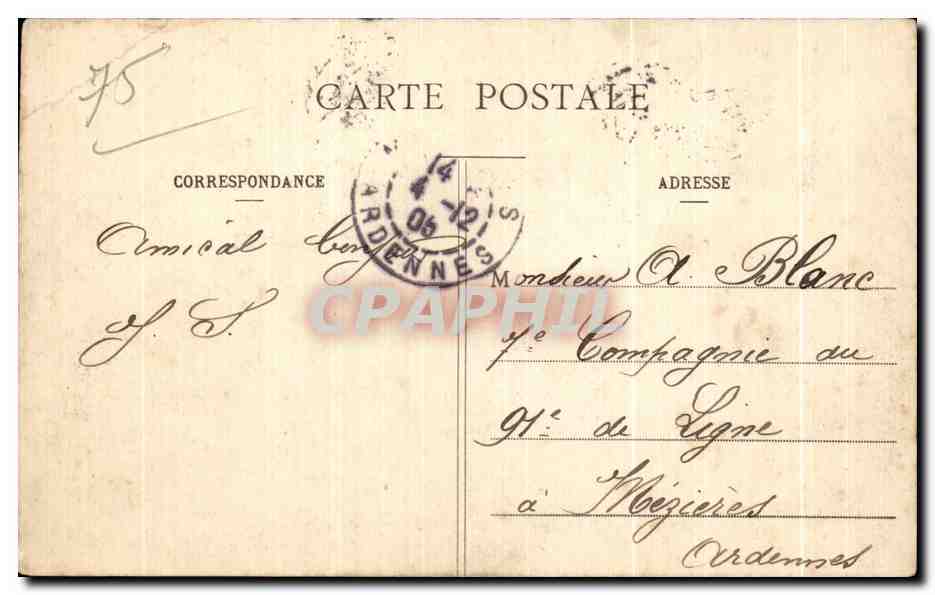 75
CARTE POSTALE
CORRESPONDANCE
ADRESSE
4
4 -12
05
ARDENNES
S
Amical
J. S.
Monsieur A. Blanc
7e Compagnie du
91e de Ligne
à Mézières
Ardennes
CPAPHIL